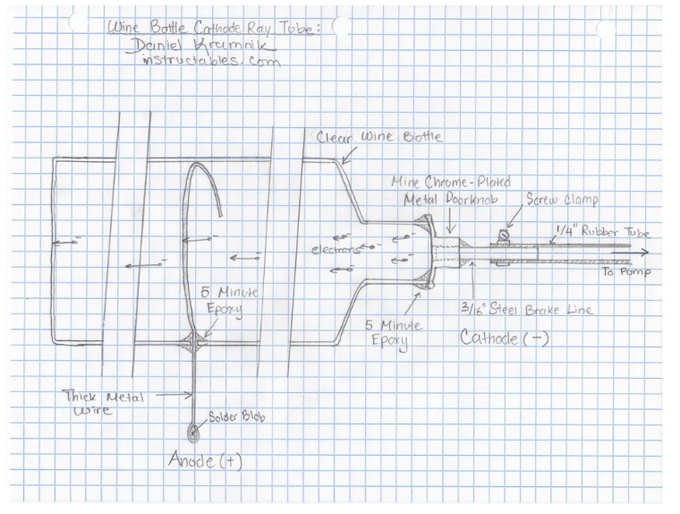 Wine Bottle Cathode Ray Tube:
Daniel Kramnik
instructables.com
Clear Wine Bottle
Mine Chrome-Plated
Metal Doorknob
Screw Clamp
1/4" Rubber Tube
electrons
To Pump
5 Minute
Epoxy
5 Minute
Epoxy
3/16" Steel Brake Line
Cathode (-)
Thick Metal
Wire
Solder Blob
Anode (+)